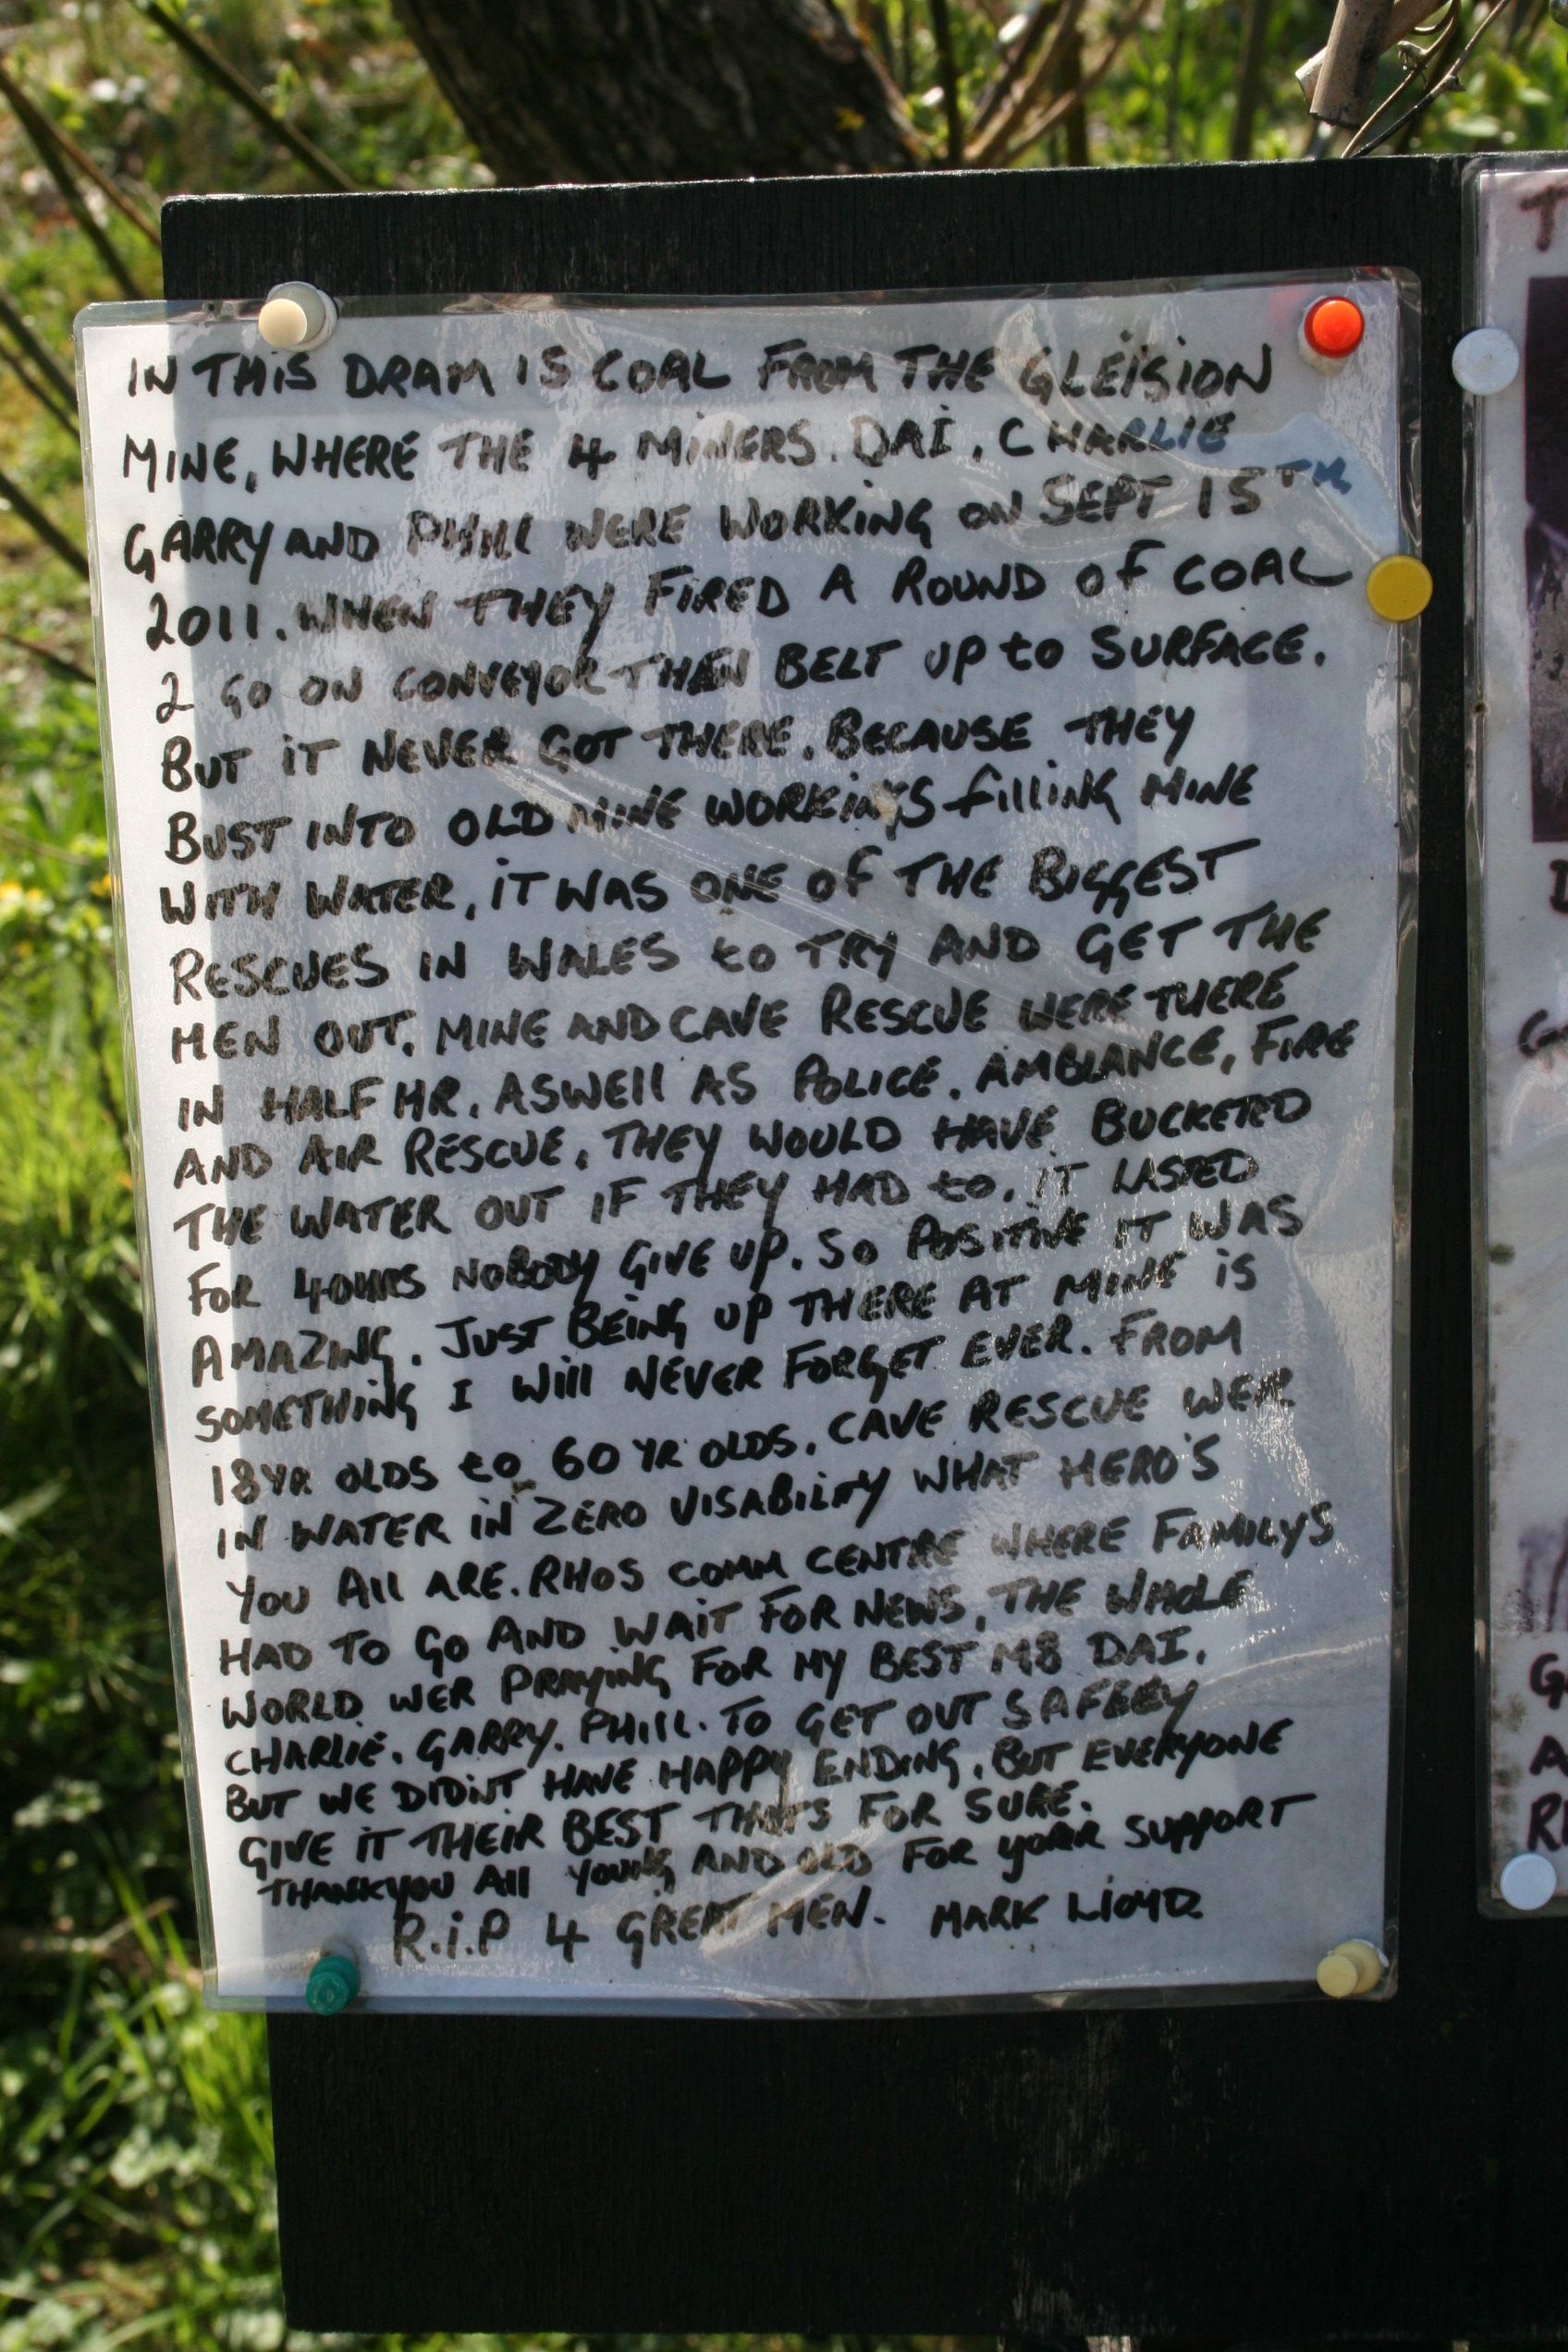 IN THIS DRAM IS COAL FROM THE GLEISION
MINE, WHERE THE 4 MINERS. DAI, CHARLIE
GARRY AND PHILL WERE WORKING ON SEPT 15TH
2011. WHEN THEY FIRED A ROUND OF COAL
2 GO ON CONVEYOR THEN BELT UP to SURFACE.
BUT IT NEVER GOT THERE. BECAUSE THEY
BUST INTO OLD MINE WORKINGS filling MINE
WITH WATER, IT WAS ONE OF THE BIGGEST
RESCUES IN WALES to TRY AND GET THE
MEN OUT. MINE AND CAVE RESCUE WERE THERE
IN HALF HR. ASWELL AS POLICE. AMBLANCE, FIRE
AND AIR RESCUE. THEY WOULD HAVE BUCKETED
THE WATER OUT IF THEY HAD to. IT LASTED
FOR 40HRS NOBODY GIVE UP. SO POSITIVE IT WAS
AMAZING. JUST BEING UP THERE AT MINE IS
SOMETHING I WILL NEVER FORGET EVER. FROM
18YR OLDS to 60 YR OLDS. CAVE RESCUE WER
IN WATER IN ZERO VISABILITY WHAT HERO'S
YOU ALL ARE. RHOS COMM CENTRE WHERE FAMILYS
HAD TO GO AND WAIT FOR NEWS, THE WHOLE
WORLD WER PRAYING FOR MY BEST M8 DAI.
CHARLIE. GARRY. PHILL. TO GET OUT SAFELY
BUT WE DIDINT HAVE HAPPY ENDING. BUT EVERYONE
GIVE IT THEIR BEST THATS FOR SURE.
THANKYOU ALL YOUNG AND OLD FOR YOUR SUPPORT
R.I.P 4 GREAT MEN. MARK LLOYD